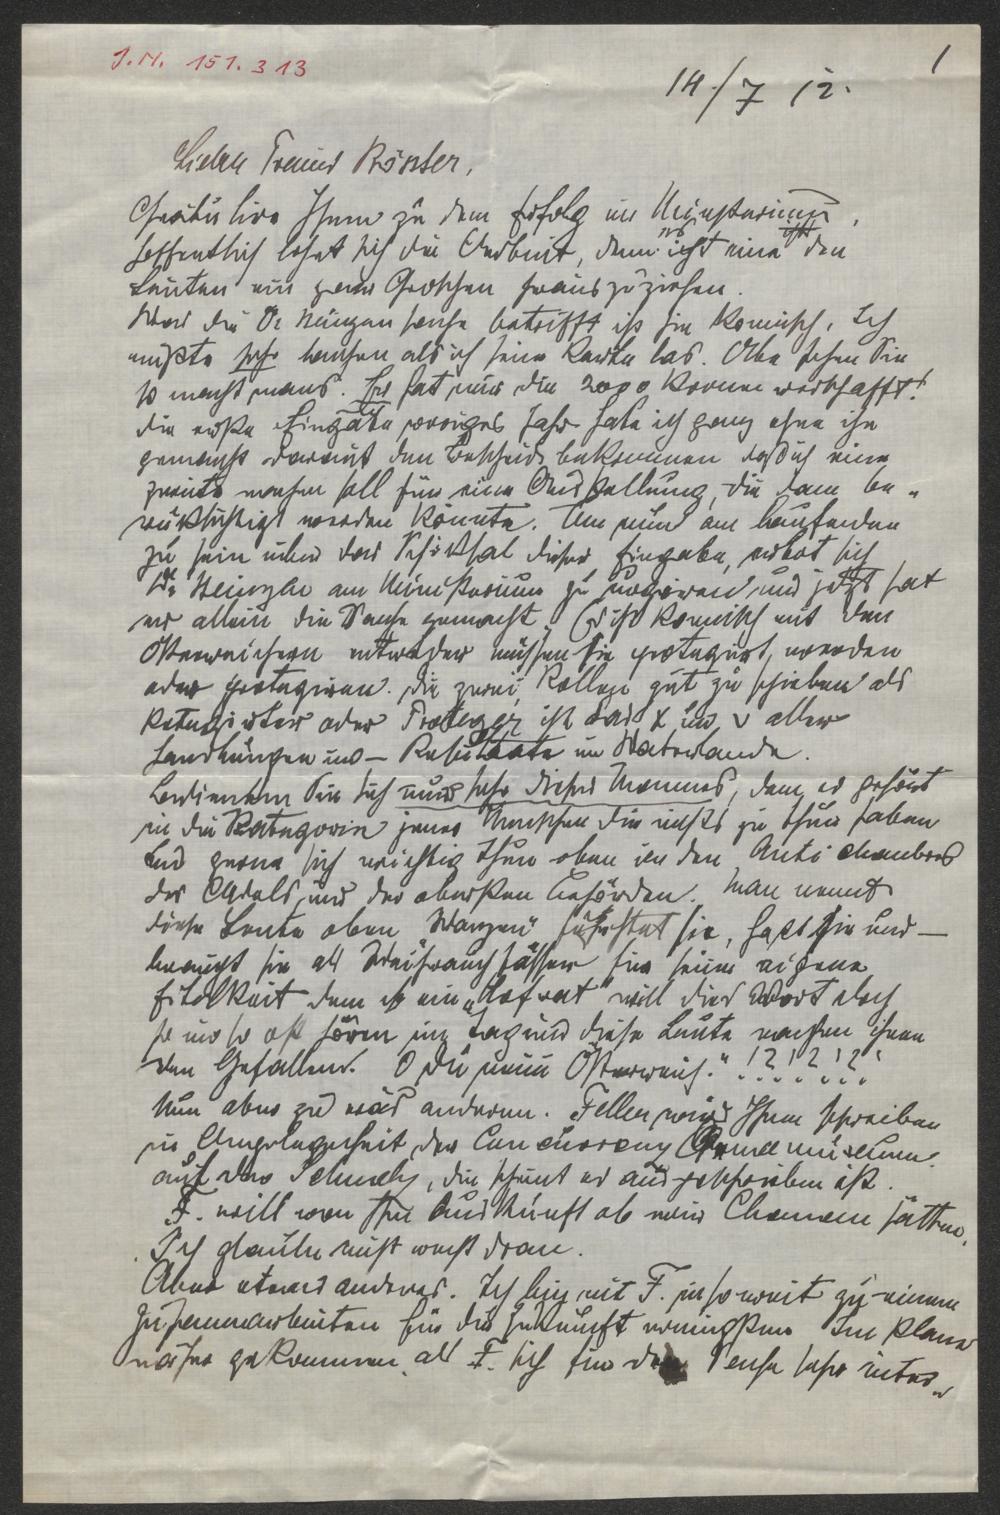 J.N. 151.313
1
14./7 12.
Lieber Freund Rössler,
Gratuliere Ihnen zu dem Erfolg im Ministerium,
hoffentlich lohnt sich die Arbeit, denn es ist nicht den
Leuten ein paar Groschen herauszuziehen.
Was die Dr Sache betrifft ist sie komisch. Ich
mußte sehr lachen als ich seine Karte las. Aber sehen Sie
so macht mans. Er hat mir die 2000 Kronen verschafft!
die erste Eingabe voriges Jahr habe ich ganz ohne ihn
gemacht darauf den Bescheid bekommen daß ich eine
zweite machen soll für eine Ausstellung, die dann be-
rücksichtigt werden könnte. Um nun am laufenden
zu sein über das Schicksal dieser Eingabe, erbot sich
Dr. am Ministerium zu urgieren und jetzt hat
er allein die Sache gemacht. Es ist komisch mit den
Österreichern entweder müssen sie protegiert werden
oder protegieren. Die zwei Kollegen gut zu schieben als
oder Protegé, ist das X und V aller
Handlungen und – Resultate im Vaterlande.
Bedienen Sie sich nur sehr dieses Mannes, denn er gehört
in die Kategorie jener Menschen die nichts zu thun haben
und gerne sich wichtig thun oben in den Antichambres
des Adels und der obersten Behörden. Man nennt
diese Leute oben „Wanzen" fürchtet sie, haßt sie und –
braucht sie als Weihrauchfässer für seine eigene
Eitelkeit denn so ein „Hofrat" will dies Wort doch
so und so oft hören im Tag und diese Leute machen ihnen
den Gefallen. O du mein Österreich." !?!?!?!
Nun aber zu was anderem. Feller wird Ihnen schreiben
in Angelegenheit der Concurrenz
auf das, die scheint es ausgeschrieben ist.
F. will von Ihnen Auskunft ob wir Chancen hätten.
Ich glaube nicht recht dran.
Aber etwas anderes. Ich bin mit F. insoweit zu einem
Zusammenarbeiten für die Zukunft wenigstens im Plane
näher gekommen, als F. sich für die Sache sehr inter-